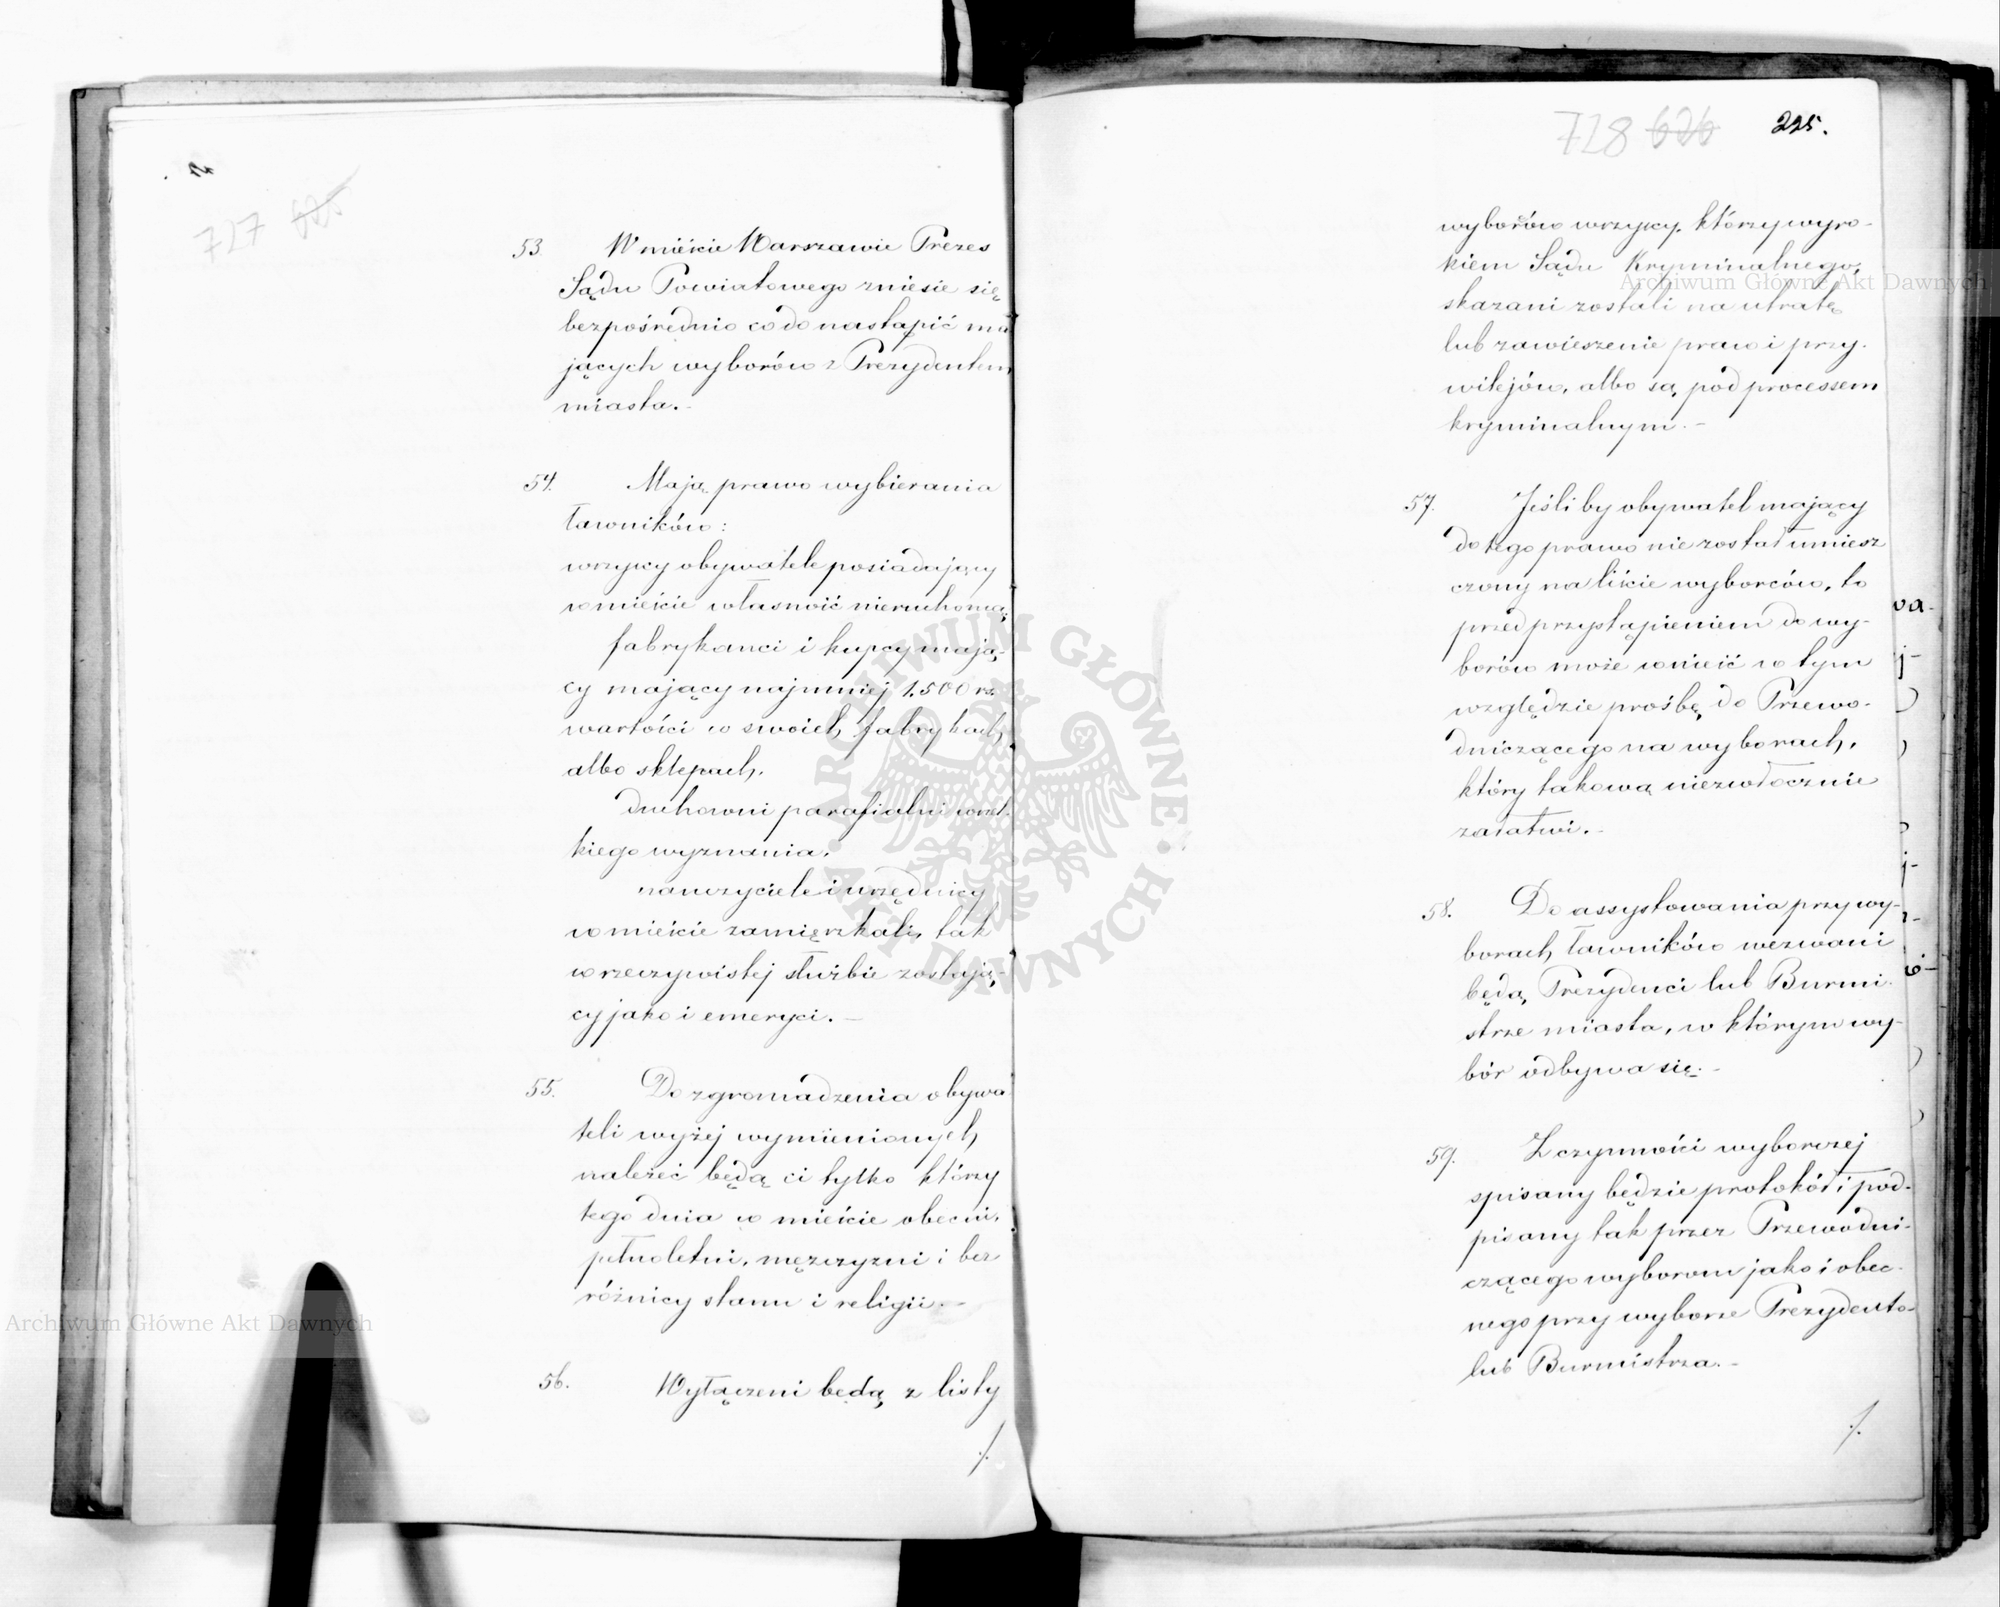 727 625
53. W mieście Warszawie Prezes
Sądu Powiatowego zniesie się
bezpośrednio co do nastąpić ma
jących wyborów z Prezydentem
miasta.-
54. Mają prawo wybierania
ławników:
wszyscy obywatele posiadający
w mieście własność nieruchomą,
fabrykanci i kupcy mają-
cy mający najmniej 1.500 rs.
wartości w swoich fabrykach
albo sklepach,
duchowni parafialni wszel-
kiego wyznania,
nauczyciele i urzędnicy
w mieście zamięszkali, tak
w rzeczywistej służbie zostają-
cy jako i emeryci. —
55. Do zgromadzenia obywa
teli wyżej wymienionych
należeć będą ci tylko którzy
tego dnia w mieście obecni,
pełnoletni, męzczyzni i bez
różnicy stanu i religii.-
56. Wyłączeni będą z listy
./.
728 626 225.
wyborów wszyscy, którzy wyro-
kiem Sądu Kryminalnego,
skazani zostali na utratę
lub zawieszenie praw i przy-
wilejów, albo są pod processem
kryminalnym. -
57. Jeśliby obywatel mający
do tego prawo nie został umiesz
czony na liście wyborców, to
przed przystąpieniem do wy-
borów może wnieść w tym
względzie prośbę do Przewo-
dniczącego na wyborach,
który takową niezwłocznie
załatwi.-
58. Do assystowania przy wy-
borach ławników wezwani
będą Prezydenci lub Burmi-
strze miasta, w którym wy-
bór odbywa się.-
59. Z czynności wyborczej
spisany będzie protokół i pod-
pisany tak przez Przewodni-
czącego wyborom jako i obec-
nego przy wyborze Prezydenta
lub Burmistrza.-
./.
Archiwum Główne Akt Dawnych
Archiwum Główne Akt Dawnych
ARCHIWUM GŁÓWNE • AKT DAWNYCH •